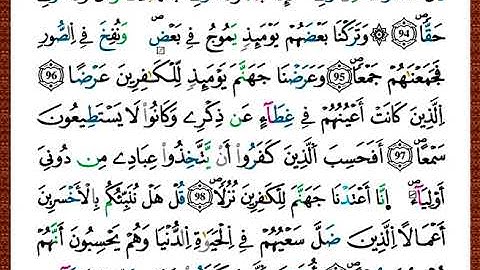 حَقّاٗ 94 ۞ وَتَرَكْنَا بَعْضَهُمْ يَوْمَئِذٖ يَمُوجُ فِے بَعْضٖ وَنُفِخَ فِے اِ۬لصُّورِ
فَجَمَعْنَٰهُمْ جَمْعاٗ 95 وَعَرَضْنَا جَهَنَّمَ يَوْمَئِذٖ لِّلْكَٰفِرِينَ عَرْضاً 96
اِ۬لذِينَ كَانَتَ اَعْيُنُهُمْ فِے غِطَآءٍ عَن ذِكْرِے وَكَانُواْ لَا يَسْتَطِيعُونَ
سَمْعاً 97 اَفَحَسِبَ اَ۬لذِينَ كَفَرُوٓاْ أَنْ يَّتَّخِذُواْ عِبَادِے مِن دُونِيَ
أَوْلِيَآءَ اِنَّآ أَعْتَدْنَا جَهَنَّمَ لِلْكَٰفِرِينَ نُزُلاٗ 98 قُلْ هَلْ نُنَبِّئُكُم بِالَاخْسَرِينَ
أَعْمَٰلاً اِ۬لذِينَ ضَلَّ سَعْيُهُمْ فِے اِ۬لْحَيَوٰةِ اِ۬لدُّنْيَا وَهُمْ يَحْسِبُونَ أَنَّهُمْ